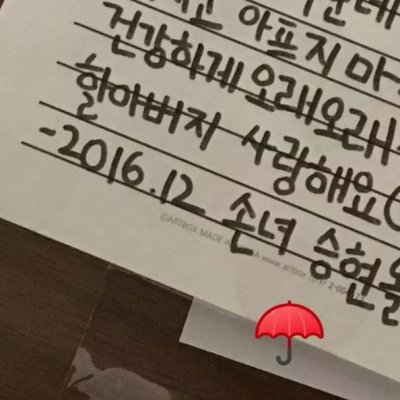 아프지마
건강하게 오래오래
할아버지 사랑해요
-2016.12 손녀 승현올
©ARTBOX MADE IN www.artbox